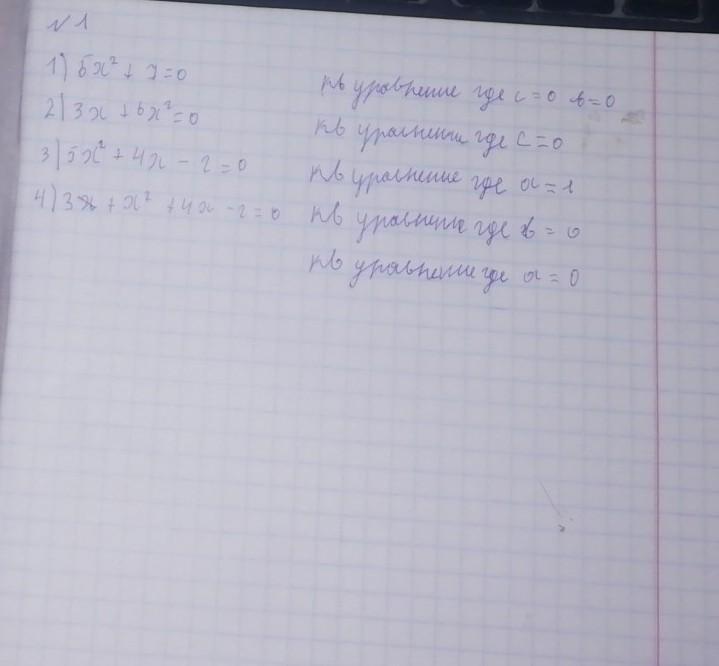 №1
1) 5x² + x = 0
2) 3x + 6x² = 0
3) 5x² + 4x - 2 = 0
4) 3x + x² + 4x - 2 = 0
кв уравнение где c = 0 в = 0
кв уравнение где c = 0
кв уравнение где a = 1
кв уравнение где в = 0
кв уравнение где a = 0